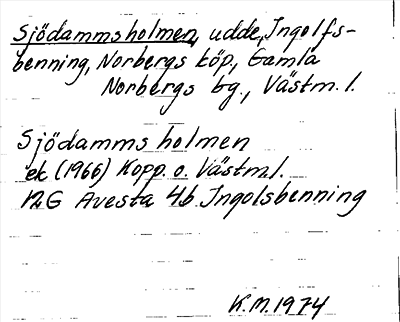 Sjödammsholmen, udde, Ingolfs-
benning, Norbergs köp., Gamla
Norbergs bg., Västm. l.
Sjödammsholmen
ek (1966) Kopp. o. Västml.
12G Avesta 4b Ingolsbenning
K.M. 1974